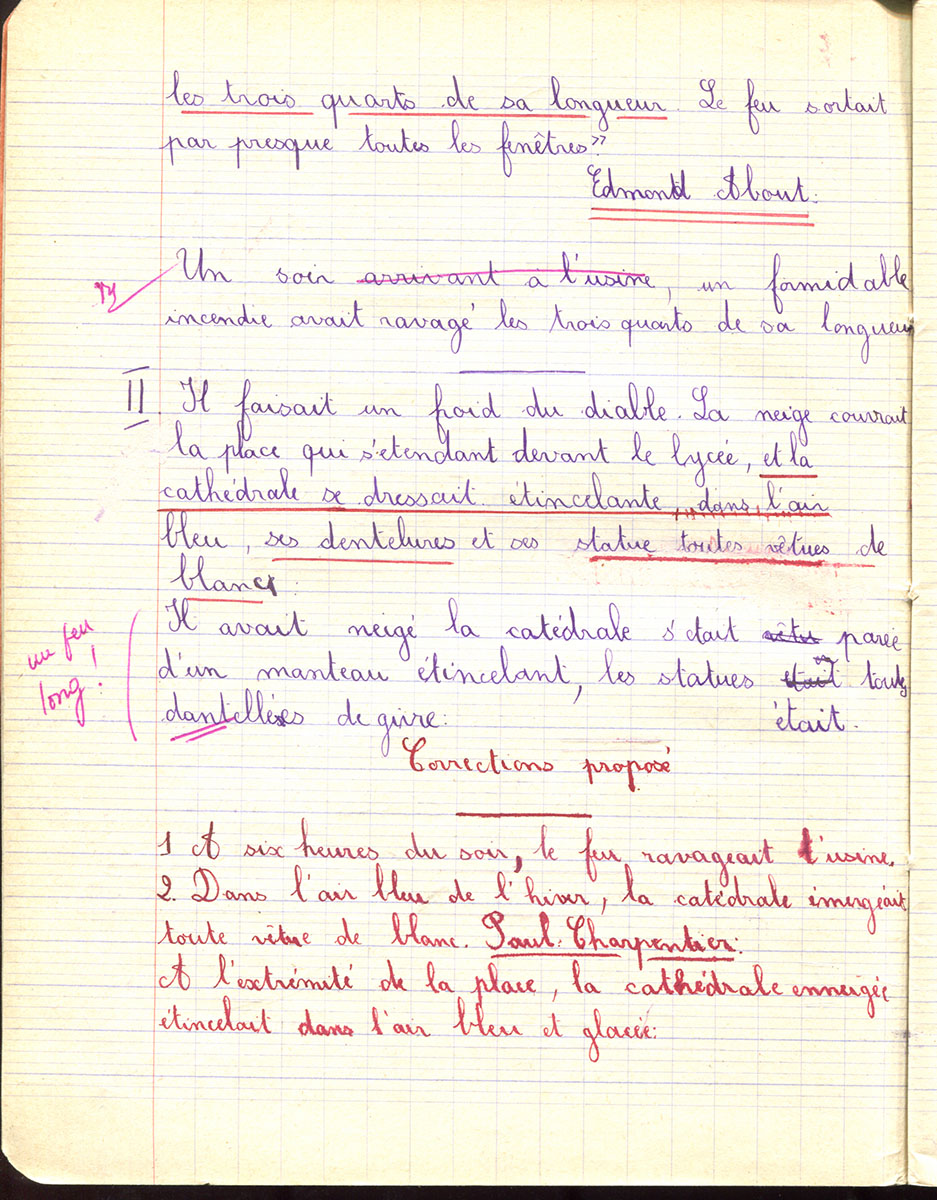 les trois quarts de sa longueur. Le feu sortait
par presque toutes les fenêtres"
Edmond About.
Un soir arrivant à l'usine, un formidable
incendie avait ravagé les trois quarts de sa longueur
II. Il faisait un froid du diable. La neige couvrait
la place qui s'étendant devant le lycée, et la
cathédrale se dressait étincelante, dans l'air
bleu, ses dentelures et ses statue toutes vêtues de
blanc.
Il avait neigé la catédrale s'était vêtu parée
un peu
d'un manteau étincelant, les statues était toute
long!
dantellées de givre. était.
Corrections proposé
1 A six heures du soir, le feu ravageait l'usine.
2. Dans l'air bleu de l'hiver, la catédrale émergéait
toute vêtue de blanc. Paul Charpentier.
A l'extrémité de la place, la cathédrale enneigée
étincelait dans l'air bleu et glacée.